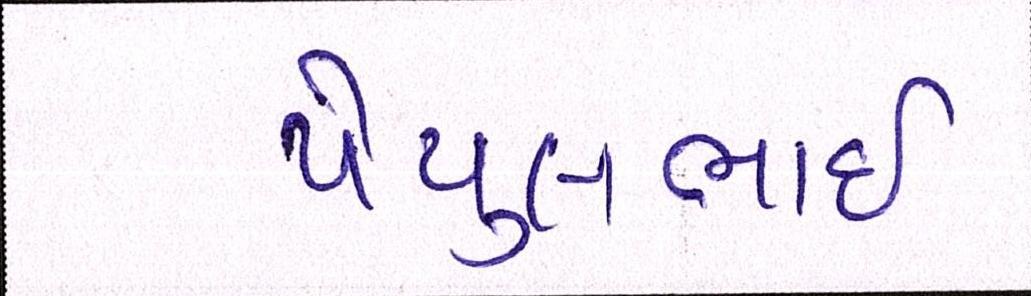 પેયુલભાઈ